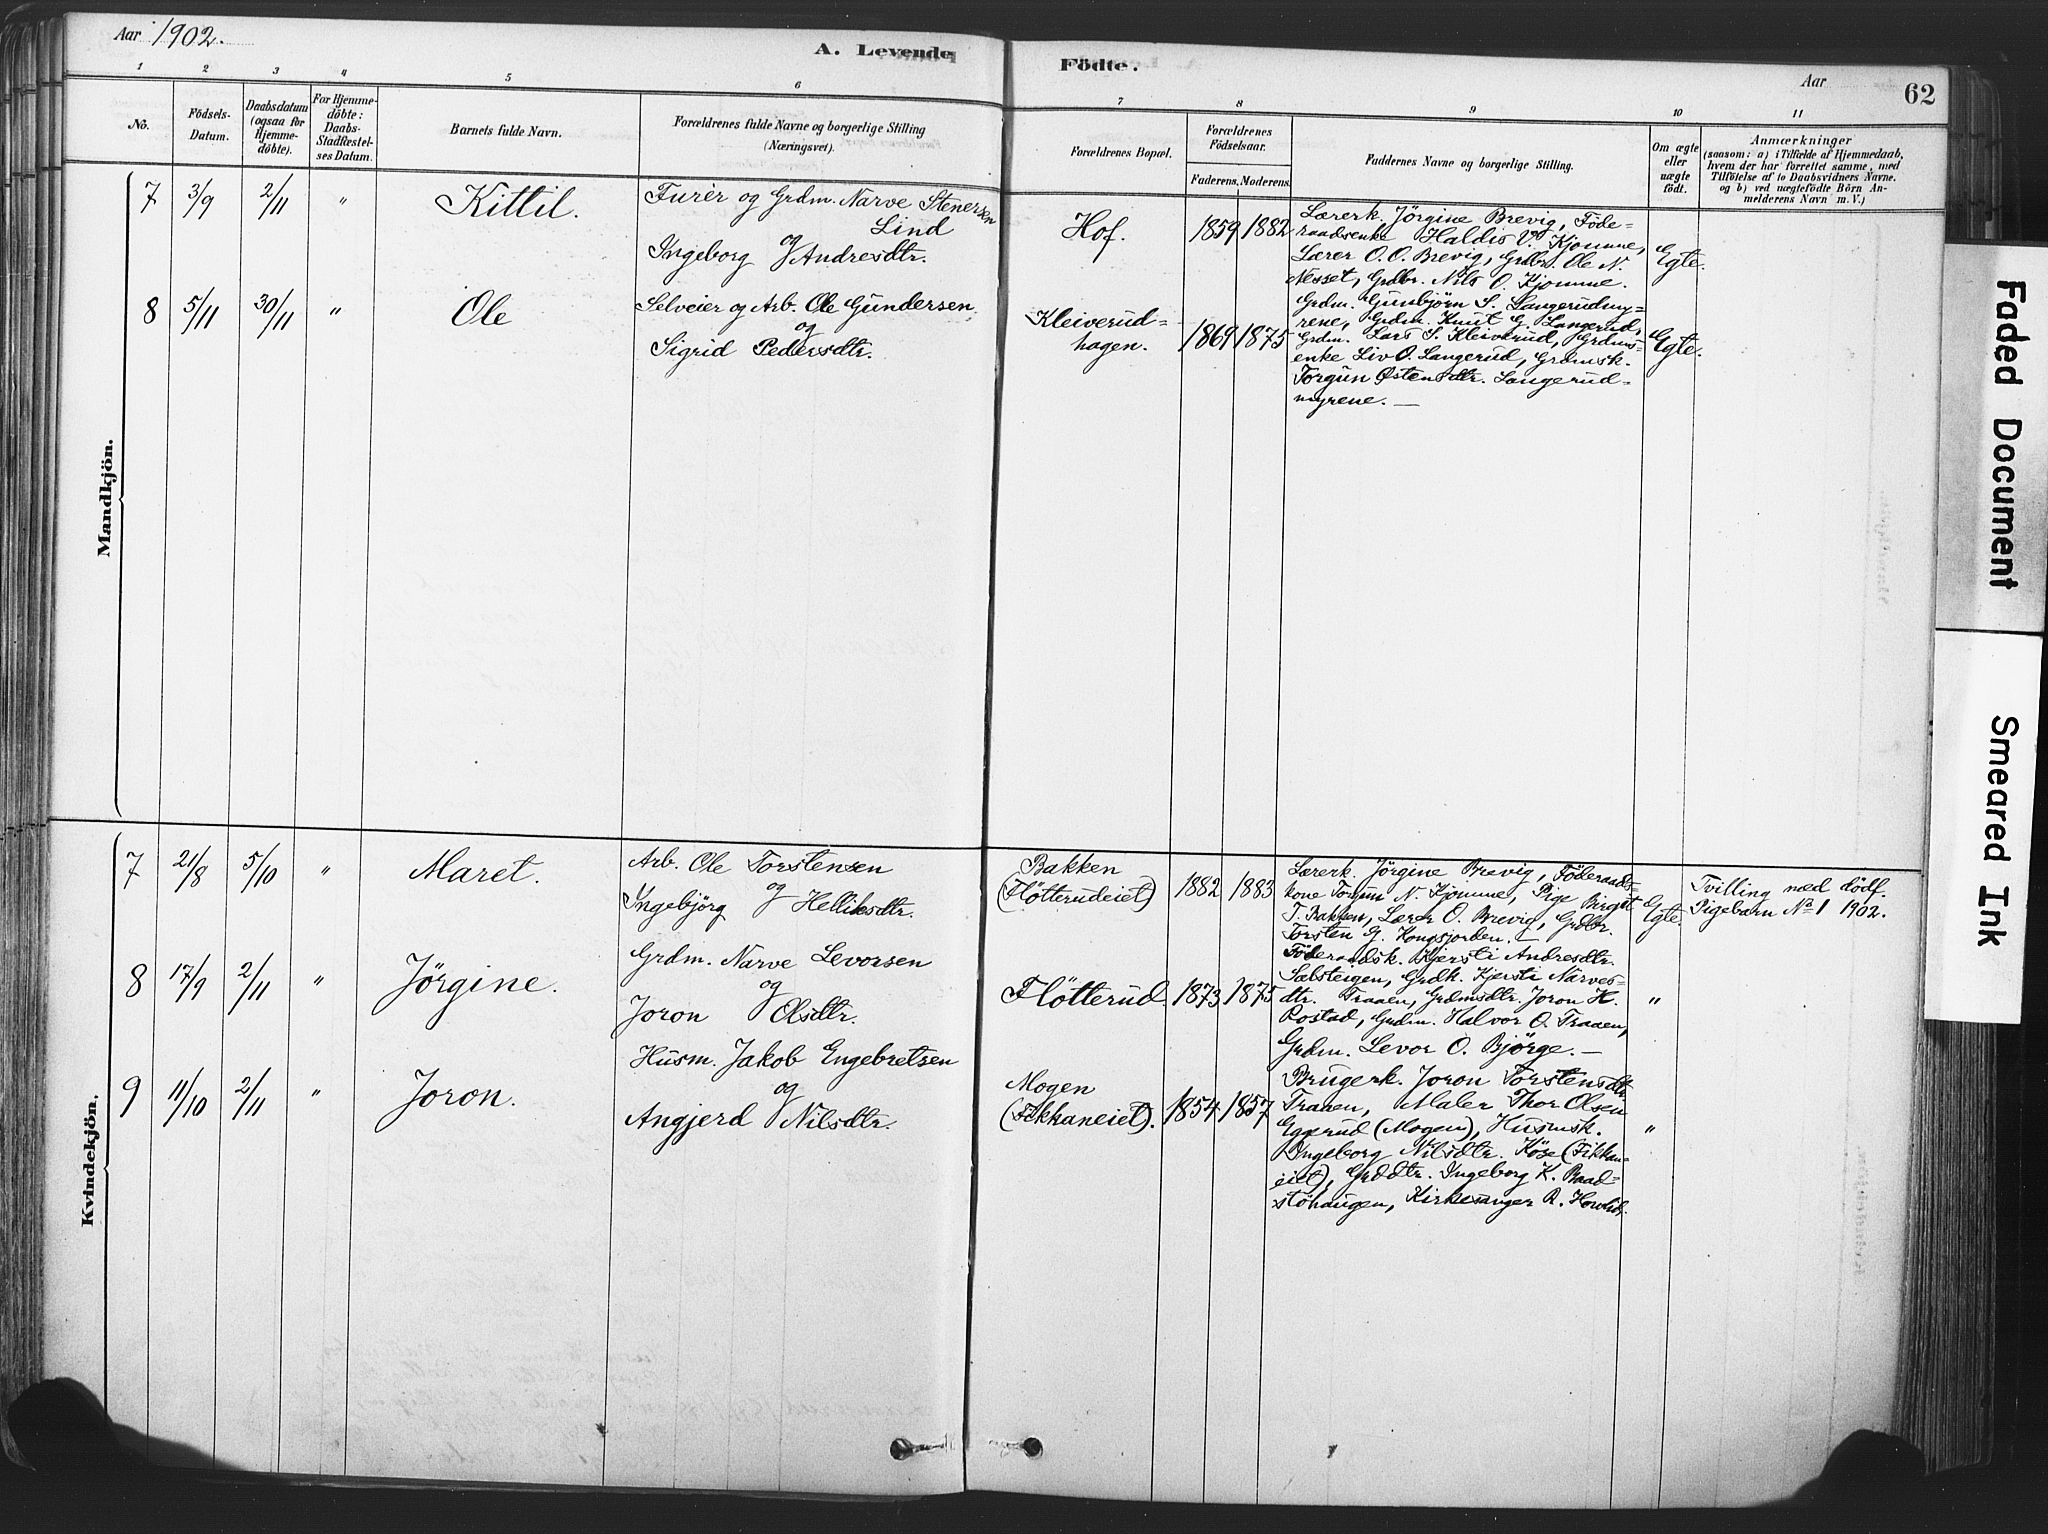 Aar 1902.
A. Levende Födte.
Aar
62
1 2 3 4 5 6 7 8 9 10 11
No.
Födsels-Datum.
Daabsdatum (ogsaa for Hjemme-döbte).
For Hjemme-döbte: Daabs-Stadfæstel-ses Datum.
Barnets fulde Navn.
Forældrenes fulde Navne og borgerlige Stilling (Næringsvei).
Forældrenes Bopæl.
Forældrenes Födselsaar.
Faderens. Moderens.
Faddernes Navne og borgerlige Stilling.
Om ægte eller uægte födt.
Anmærkninger
(saasom: a) i Tilfælde af Hjemmedaab,
hvem der har forrettet samme, med
Tilföielse af to Daabsvidners Navne.
og b) ved uægtefödte Börn An-
melderens Navn m. V.)
Mandkjön.
7 3/9 2/11 " Kittil.
Furér og Grdm. Narve Stenersen
Lind
og
Ingeborg Andresdtr.
Hof. 1859 1882
Lærerk. Jörgine Brevig, Föde-
raadsenke Haldis V. Kjomme,
Lærer O. O. Brevig, Grdbr. Ole N.
Nesset, Grdbr. Nils O. Kjomme.
Egte.
8 5/11 30/11 " Ole
Selveier og Arb. Ole Gundersen
og
Sigrid Pedersdtr.
Kleiverud-
hagen. 1869 1875
Grdm. Gunbjörn S. Langerudmy-
rene, Grdm. Knut G. Langerud,
Grdm. Lars S. Kleiverud, Grdms-
enke Liv O. Langerud, Grdmsk.
Torgun Østensdtr. Langerud-
myrene. —
Egte.
Kvindekjön.
7 21/8 5/10 " Maret.
Arb. Ole Torstensen
og
Ingebjörg Helliksdtr.
Bakken
(Flötterudeiet) 1882 1883
Lærerk. Jörgine Brevig, Föderaads-
kone Torgun N. Kjomme, Pige Birgit
T. Bakken, Lærer O. Brevig, Grdbr.
Torsten G. Kongsjorden. —
Egte.
Tvilling med dödf.
Pigebarn No 1 1902.
8 17/9 2/11 " Jörgine.
Grdm. Narve Levorsen
og
Joron Olsdtr.
Flötterud 1873 1875
Föderaadsk. Kjersti Andresdtr.
Sæbsteigen, Grdk. Kjersti Narves-
dtr. Traaen, Grdmsdtr. Joron H.
Rostad, Grdm. Halvor O. Traaen,
Grdm. Levor O. Björge. —
"
9 11/10 2/11 " Joron.
Husm. Jakob Engebretsen
og
Angjerd Nilsdtr.
Mogen
(Fikkaneiet). 1854 1857
Brugerk. Joron Torstensdtr.
Traaen, Maler Thor Olsen
Eggerud (Mogen), Husmsk.
Ingeborg Nilsdtr. Köse (Fikkan-
eiet), Grddtr. Ingeborg K. Baad-
stöhaugen, Kirkesanger R.
"
Faded Document
Smeared Ink